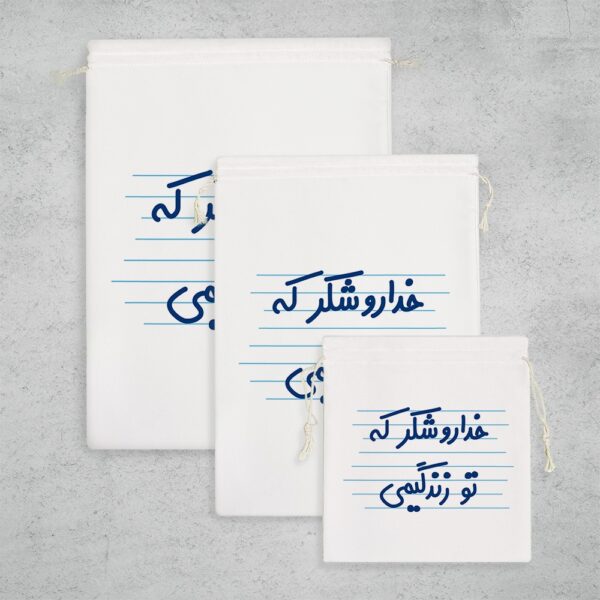 که
یمی
خدارو شکر که
می
خدارو شکر که
تو زندگیمی